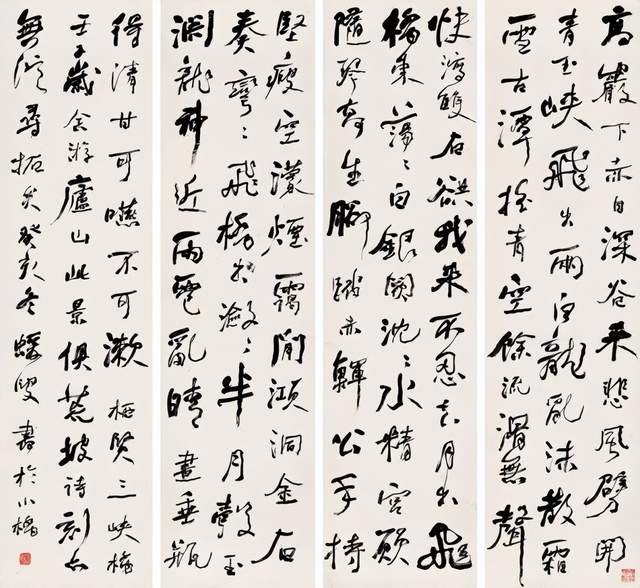 高巖下赤日深谷來悲風擘開
青玉峽飛出兩白龍亂沫散霜
雪古潭搖青空餘流滑無聲
快瀉雙石谼我來不忍去月出飛
橋東蕩々白銀闕沈々水精宮願
隨琴高生腳踏赤鯶公手持
堅瘦空濛煙靄間澒洞金石
奏彎々飛橋出瀲々半月彀玉
淵龍神近雨雹亂晴晝垂瓶
得清甘可嚥不可漱 栖賢三峽橋
壬子歲余游廬山此景俱荒坡詩刻亦
無從尋拓矣癸亥冬蠖叟書於小